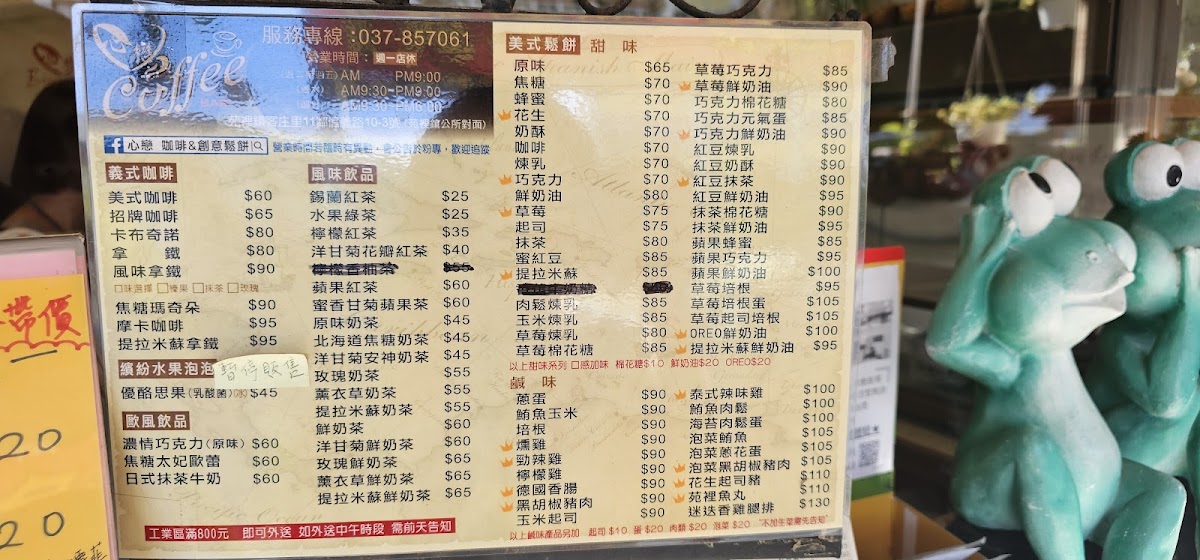 心戀
Coffee
BAR
服務專線:037-857061
營業時間: 週一店休
AM PM9:00
AM9:30-PM9:00
AM9:30-PM6:00
10-3號(苑裡鎮公所對面)
f 心戀 咖啡&創意鬆餅
營業時間若臨時有異動,會公告於粉專,歡迎追蹤
義式咖啡
美式咖啡 $60
招牌咖啡 $65
卡布奇諾 $80
拿鐵 $80
風味拿鐵 $90
口味選擇 □榛果 □抹茶 □玫瑰
焦糖瑪奇朵 $90
摩卡咖啡 $95
提拉米蘇拿鐵 $95
繽紛水果泡泡 暫停販售
優酪思果(乳酸菌) $45
歐風飲品
濃情巧克力(原味) $60
焦糖太妃歐蕾 $60
日式抹茶牛奶 $60
風味飲品
錫蘭紅茶 $25
水果綠茶 $25
檸檬紅茶 $35
洋甘菊花瓣紅茶 $40
蘋果紅茶 $60
蜜香甘菊蘋果茶 $60
原味奶茶 $45
北海道焦糖奶茶 $45
洋甘菊安神奶茶 $45
玫瑰奶茶 $55
薰衣草奶茶 $55
提拉米蘇奶茶 $55
鮮奶茶 $60
洋甘菊鮮奶茶 $60
玫瑰鮮奶茶 $65
薰衣草鮮奶茶 $65
提拉米蘇鮮奶茶 $65
工業區滿800元 即可外送 如外送中午時段 需前天告知
美式鬆餅 甜味
原味 $65
焦糖 $70
蜂蜜 $70
花生 $70
奶酥 $70
咖啡 $70
煉乳 $70
巧克力 $70
鮮奶油 $80
草莓 $75
起司 $75
抹茶 $80
蜜紅豆 $85
提拉米蘇 $85
肉鬆煉乳 $85
玉米煉乳 $85
草莓煉乳 $80
草莓棉花糖 $85
草莓巧克力 $85
草莓鮮奶油 $90
巧克力棉花糖 $80
巧克力元氣蛋 $85
巧克力鮮奶油 $90
紅豆煉乳 $90
紅豆奶酥 $90
紅豆抹茶 $90
紅豆鮮奶油 $95
抹茶棉花糖 $90
抹茶鮮奶油 $95
蘋果蜂蜜 $85
蘋果巧克力 $95
蘋果鮮奶油 $100
草莓培根 $95
草莓培根蛋 $105
草莓起司培根 $105
OREO鮮奶油 $100
提拉米蘇鮮奶油 $95
以上甜味系列 口感加味 棉花糖$10 鮮奶油$20 OREO$20
鹹味
蔥蛋 $90
鮪魚玉米 $90
培根 $90
燻雞 $90
勁辣雞 $90
檸檬雞 $90
德國香腸 $90
黑胡椒豬肉 $90
玉米起司 $90
泰式辣味雞 $100
鮪魚肉鬆 $100
海苔肉鬆蛋 $100
泡菜鮪魚 $105
泡菜蔥花蛋 $105
泡菜黑胡椒豬肉 $105
花生起司豬 $110
苑裡魚丸 $110
迷迭香雞腿排 $130
以上鹹味產品另加 起司$10 蛋$20 肉類$20 泡菜$20 "不加生菜需先告知"
帶價
20
20